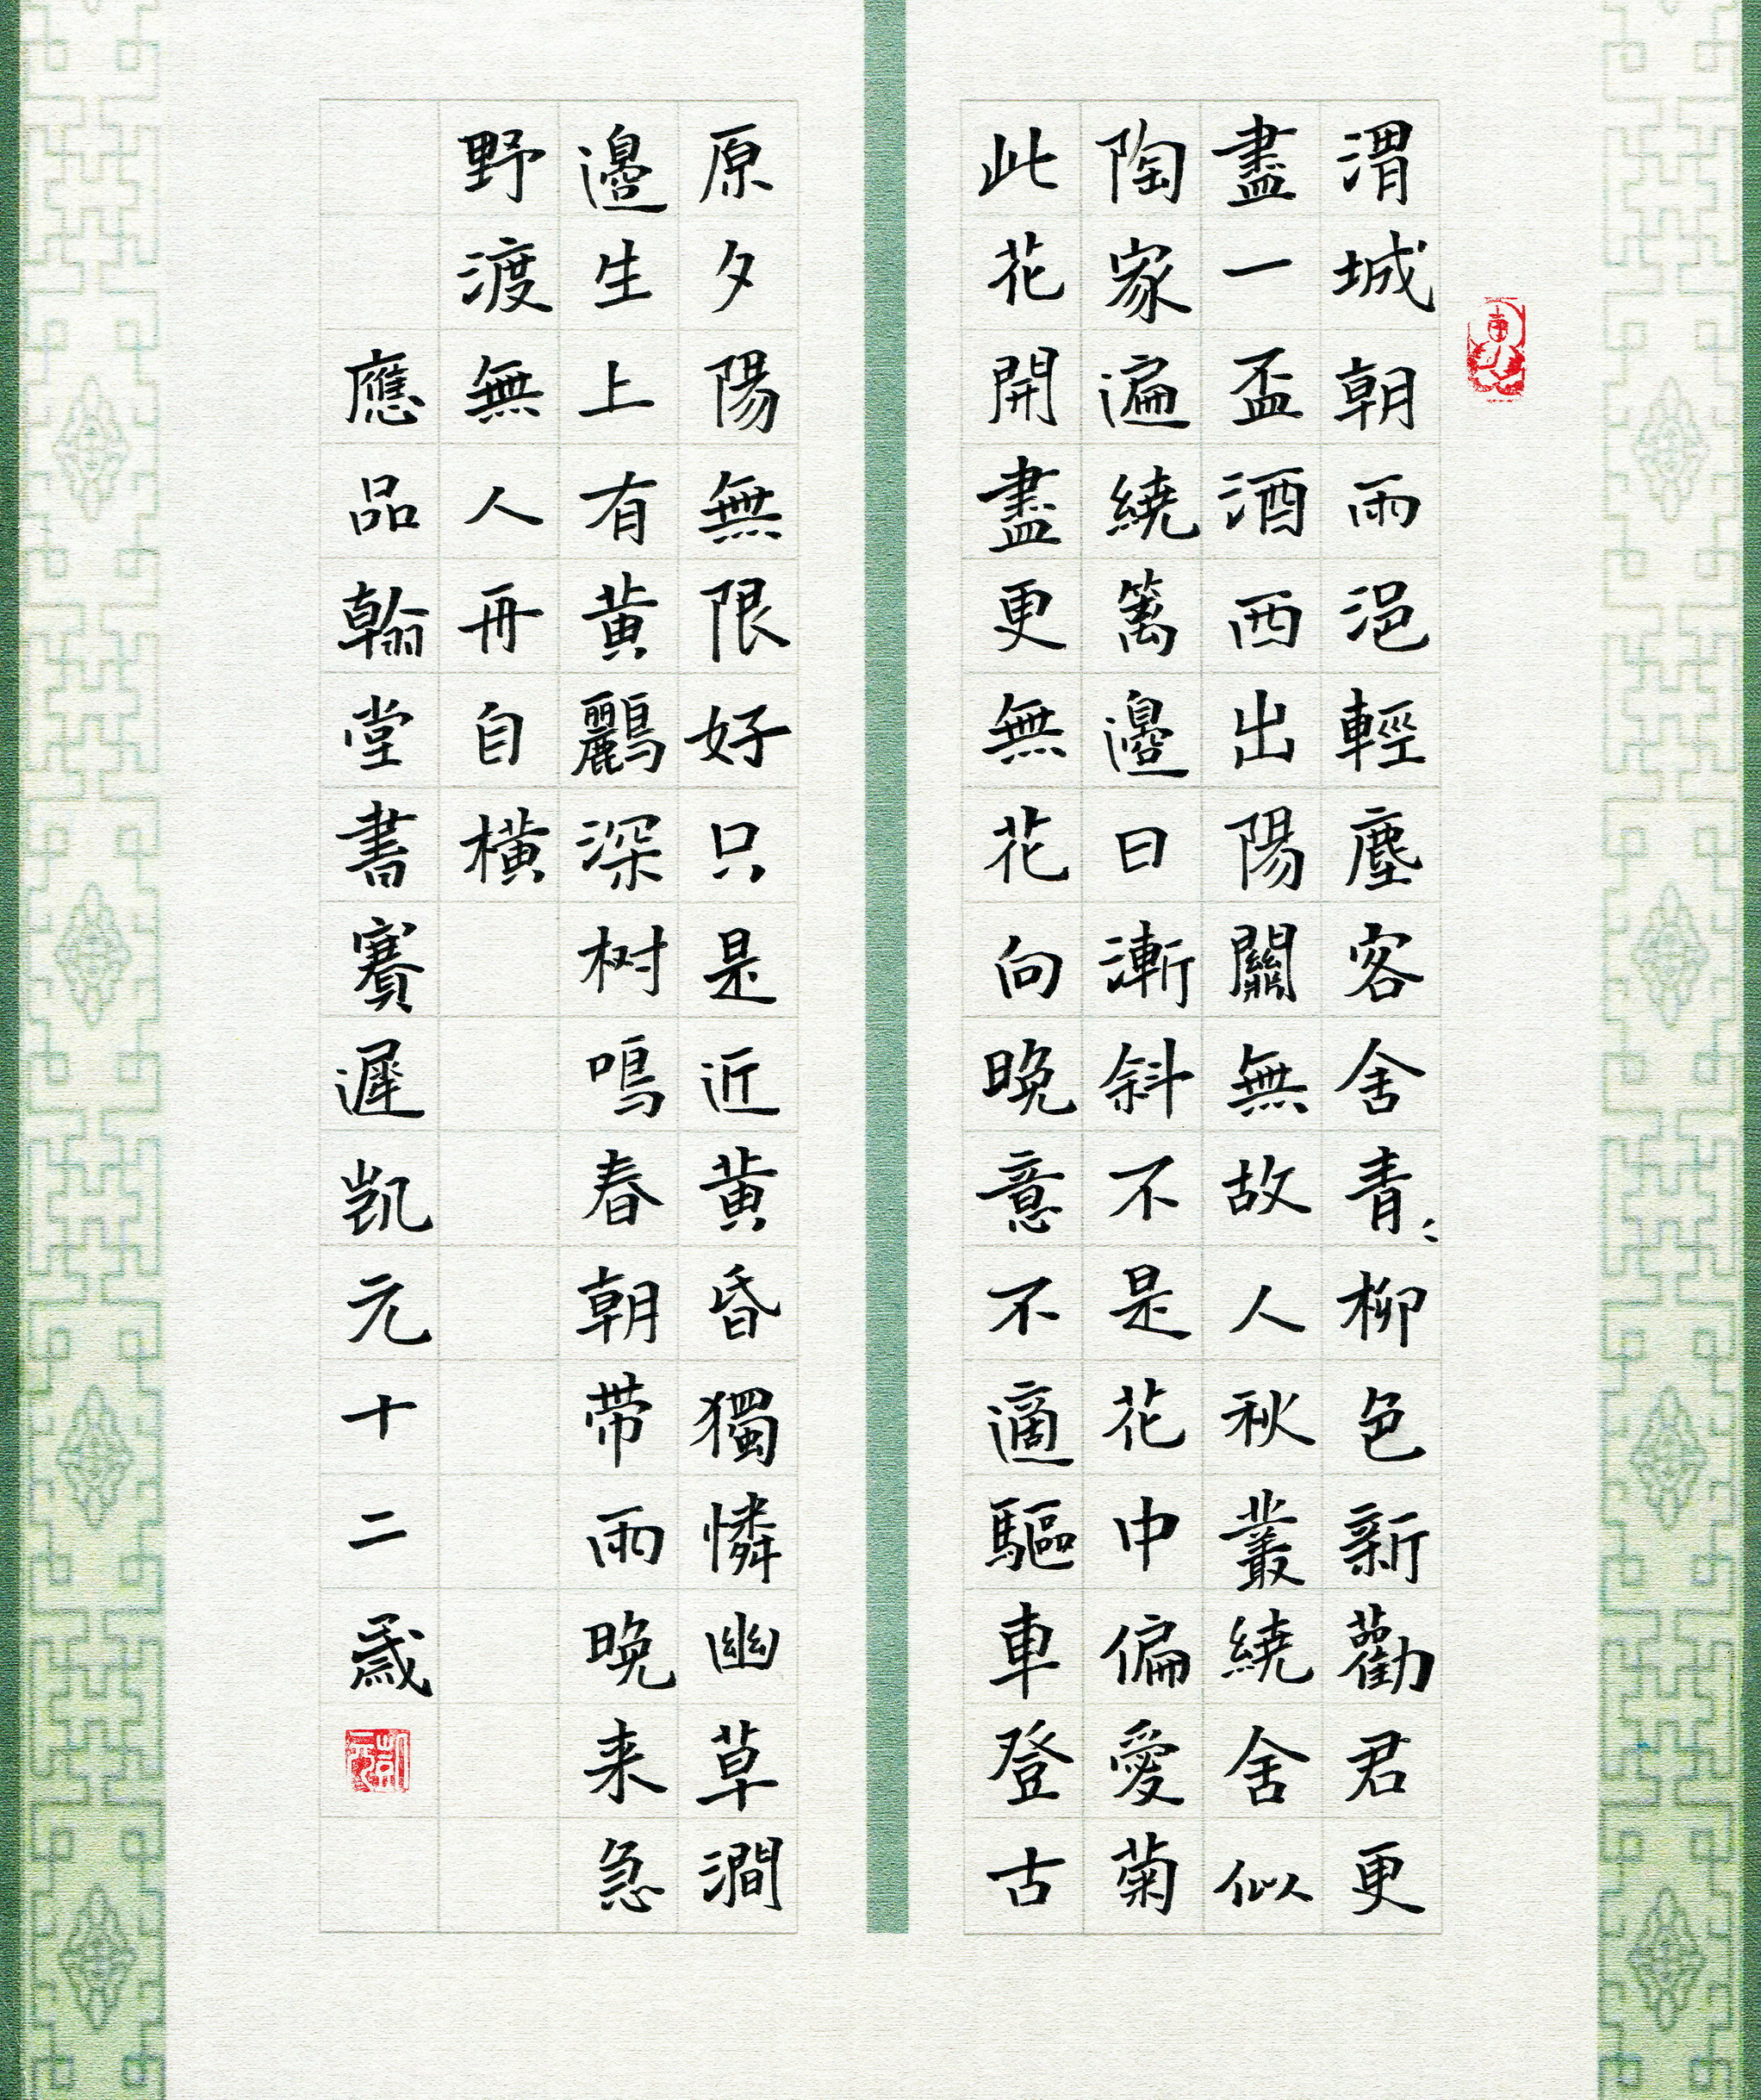 渭城朝雨浥輕塵客舍青〻柳色新勸君更
盡一盃酒西出陽關無故人秋叢繞舍似
陶家遍繞篱邊日漸斜不是花中偏愛菊
此花開盡更無花向晚意不適驅車登古
原夕陽無限好只是近黄昏獨憐幽草澗
邊生上有黄鸝深树鳴春朝带雨晚来急
野渡無人舟自橫
應品翰堂書賽遲凯元十二歲
凯元